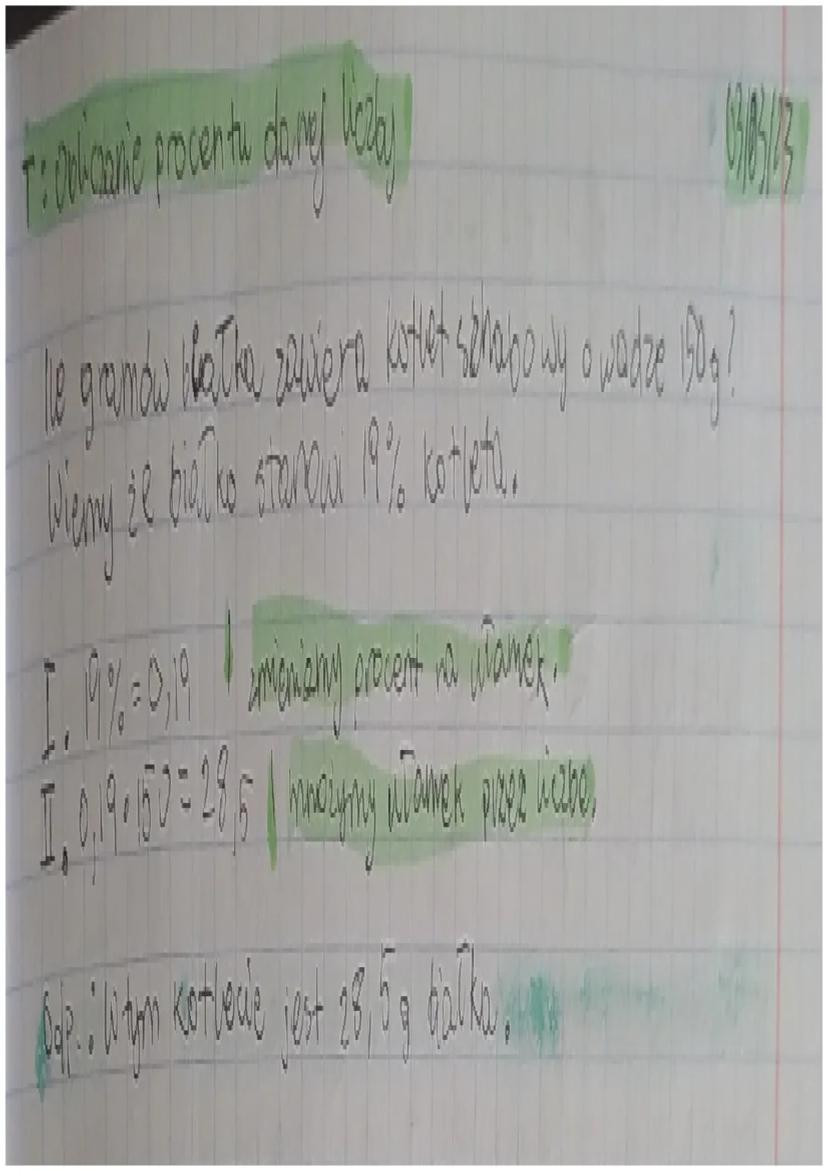 T: Obliczanie procentu danej liczby 03/03/23
Ile gramów białka zawiera kotlet schabowy o wadze 150g?
Wiemy że białko stanowi 19% kotleta.
I. 19% = 0,19 zmieniamy procent na ułamek.
II. 0,19 · 150 = 28,5 mnożymy ułamek przez liczbę.
Odp.: W tym kotlecie jest 28,5g białka.